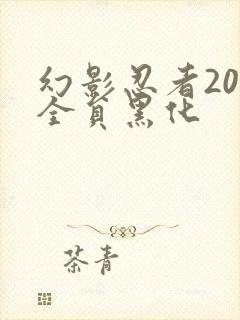 幻影忍者20
全员黑化
茶青